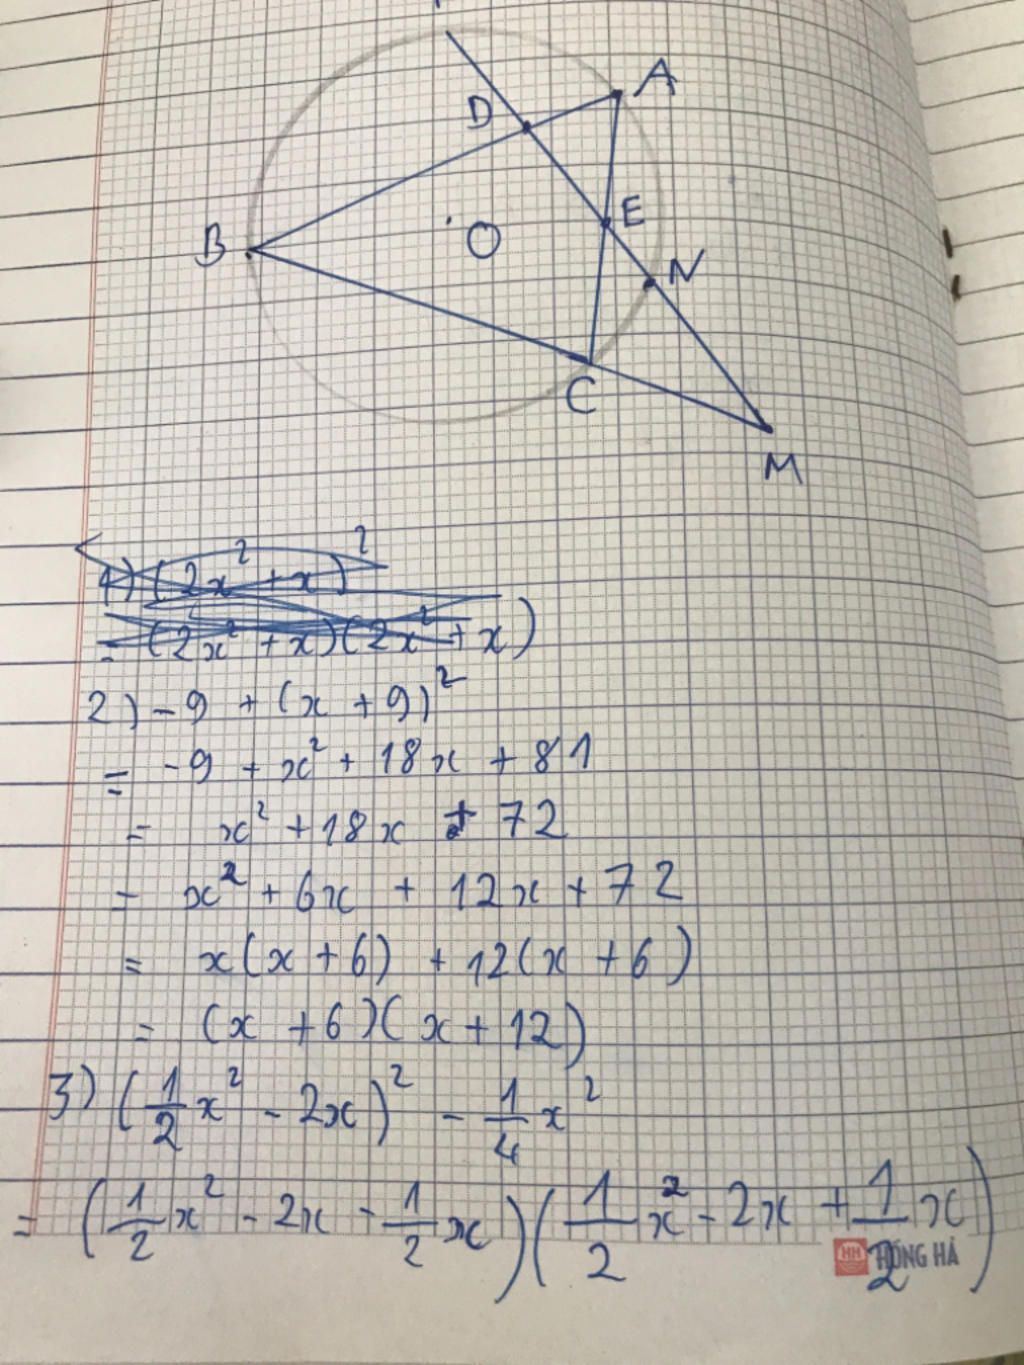 A
D
E
B
O
N
C
M
1) (2x² + x)²
= (2x² + x)(2x² + x)
2) -9 + (x + 9)²
= -9 + x² + 18x + 81
= x² + 18x + 72
= x² + 6x + 12x + 72
= x(x + 6) + 12(x + 6)
= (x + 6)(x + 12)
3) (1/2 x² - 2x)² - 1/4 x²
= (1/2 x² - 2x - 1/2 x)(1/2 x² - 2x + 1/2 x)
HH HỒNG HÀ